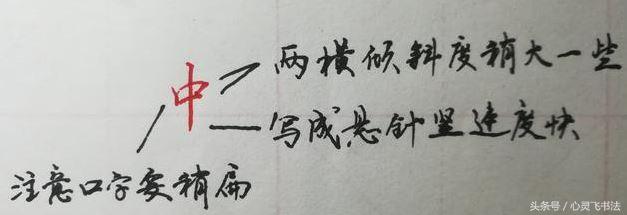 两横倾斜度稍大一些
中
写成悬针竖速度快
注意口字要稍扁
头条号／心灵飞书法